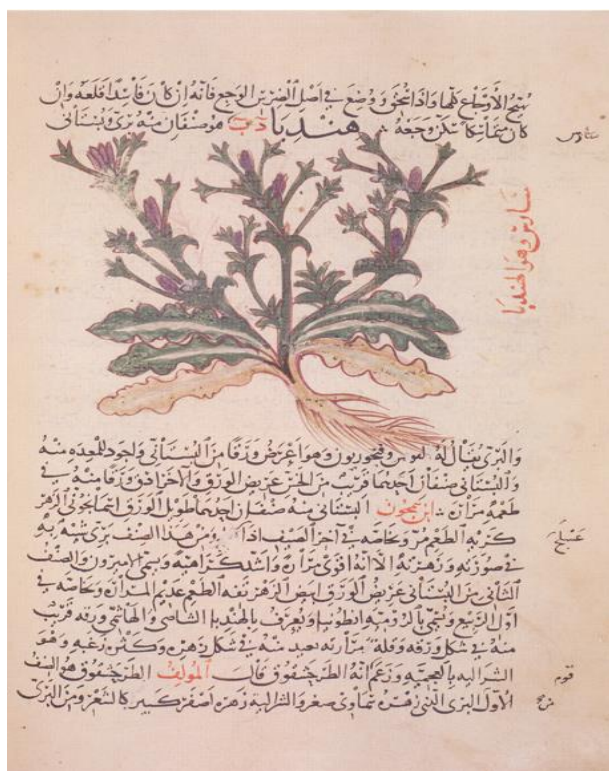 يهيج الأوجاع كلها واذا سحق ووضع في اصل الضرس الوجع فانه ان كان فاسدا اقلعه وان
كان سكن وجعه هندبا د ب هو صنفان منه بري وبستاني
سارس وهو الهندبا
والبري يقال له وقيخوريون وهو اعرض ورقا من البستاني واجود للمعده منه
والبستاني صنفان احدهما قريب من الخس عريض الورق والاخر ادق ورقا منه في
طعمه مرارة ابن سمجون البستاني منه صنفان احدهما طويل الورق اسمانجوني الزهر
كريه الطعم مر وخاصة في آخر الصيف اذا ومن هذا الصنف بري شبيه به
في صورته وزهرته الا انه اقوى مرارة واشد كراهية ويسمى الاميرون والصنف
الثاني من البستاني عريض الورق ابيض الزهر تفه الطعم عديم المرارة وخاصة في
اول الربيع ويسمى بالرومية انطونيا ويعرف بالهندبا الشامي والهاشمي وورقه قريب
منه في شكل ورقه وقلة مرارته بعيد منه في شكل زهره وكثرة زغبه وهو
الشرالية بالعجمية وزعم انه الطرخشقوق قال المولف الطرخشقوق هو الصنف
الاول البري الذي زهرته سماوي صغر والشرالية زهره اصفر كبير كالشعر ومن البري
قوم